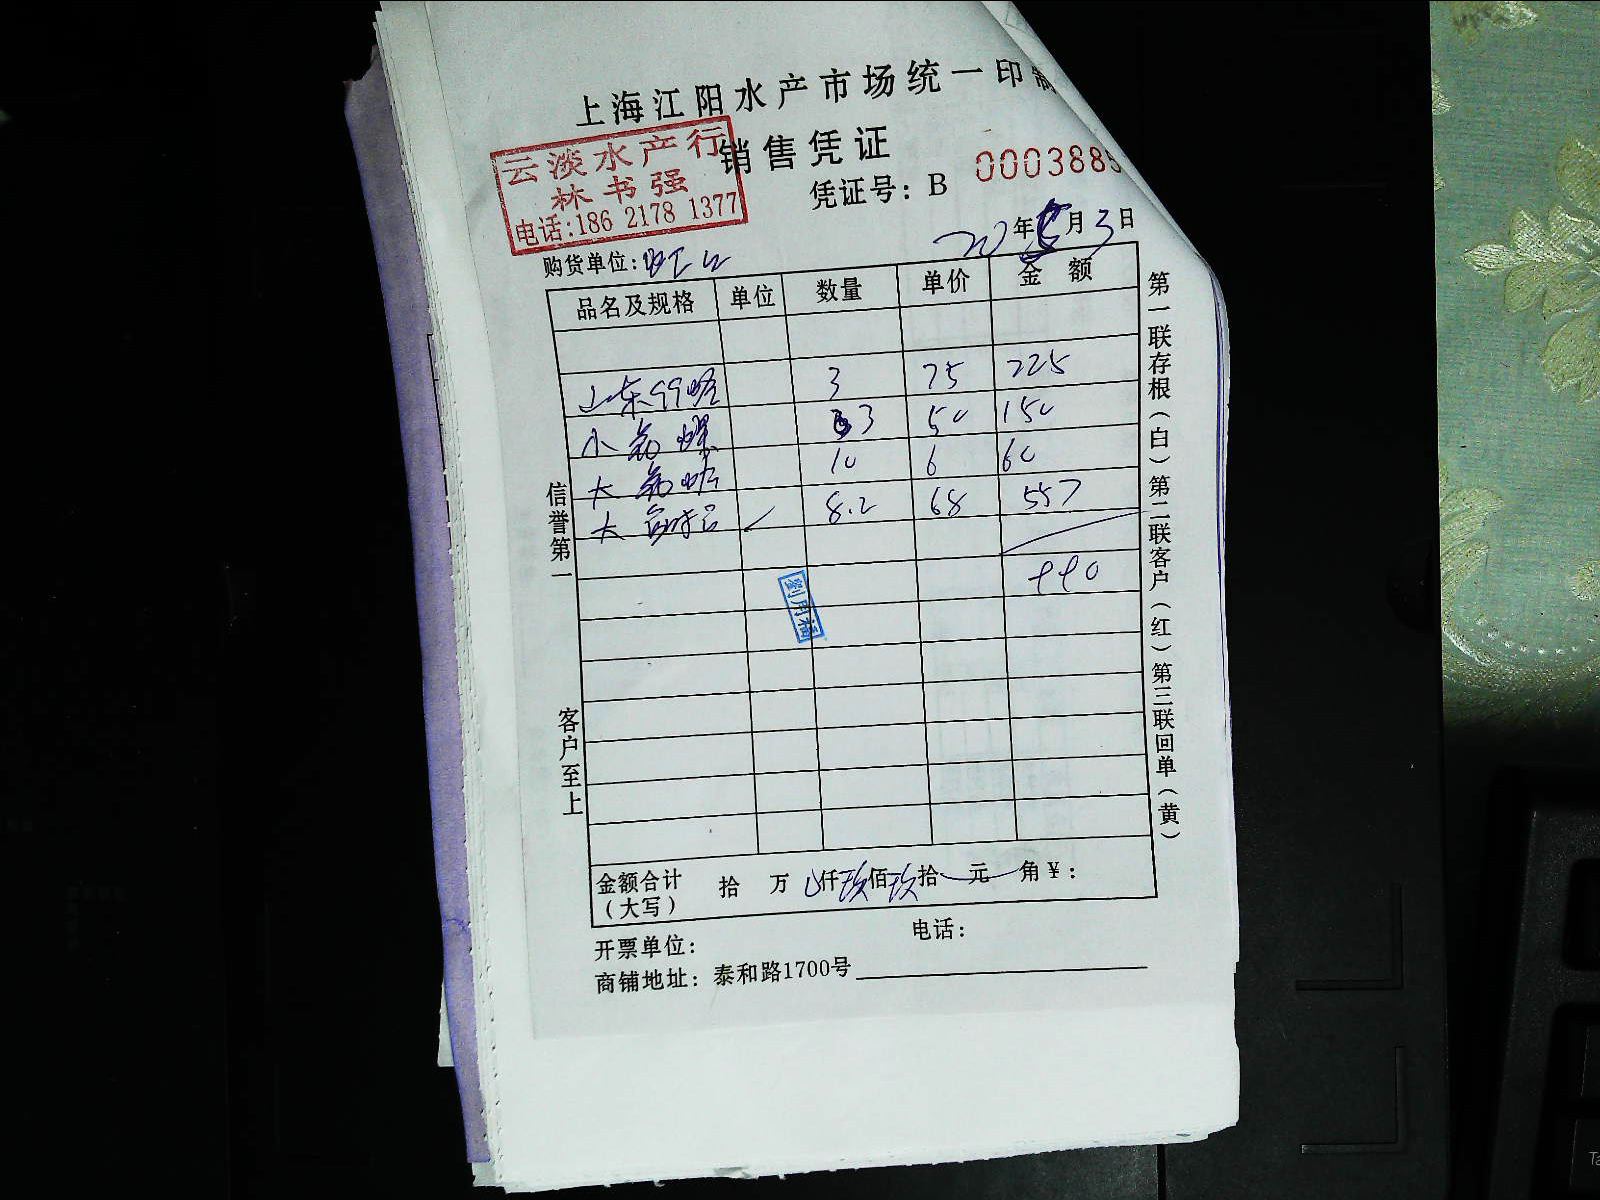 上海江阳水产市场统一印制
销售凭证
云淡水产行
林书强
电话:186 2178 1377
凭证号: B 0003885
20年5月3日
购货单位:
品名及规格 单位 数量 单价 金额
山东 3 75 225
小 3 50 150
大 10 6 60
大 8.2 68 557
990
劉用福
信誉第一
客户至上
第一联存根(白) 第二联客户(红) 第三联回单(黄)
金额合计 拾 万 仟玖佰玖拾 元 角¥:
(大写)
开票单位: 电话:
商铺地址: 泰和路1700号